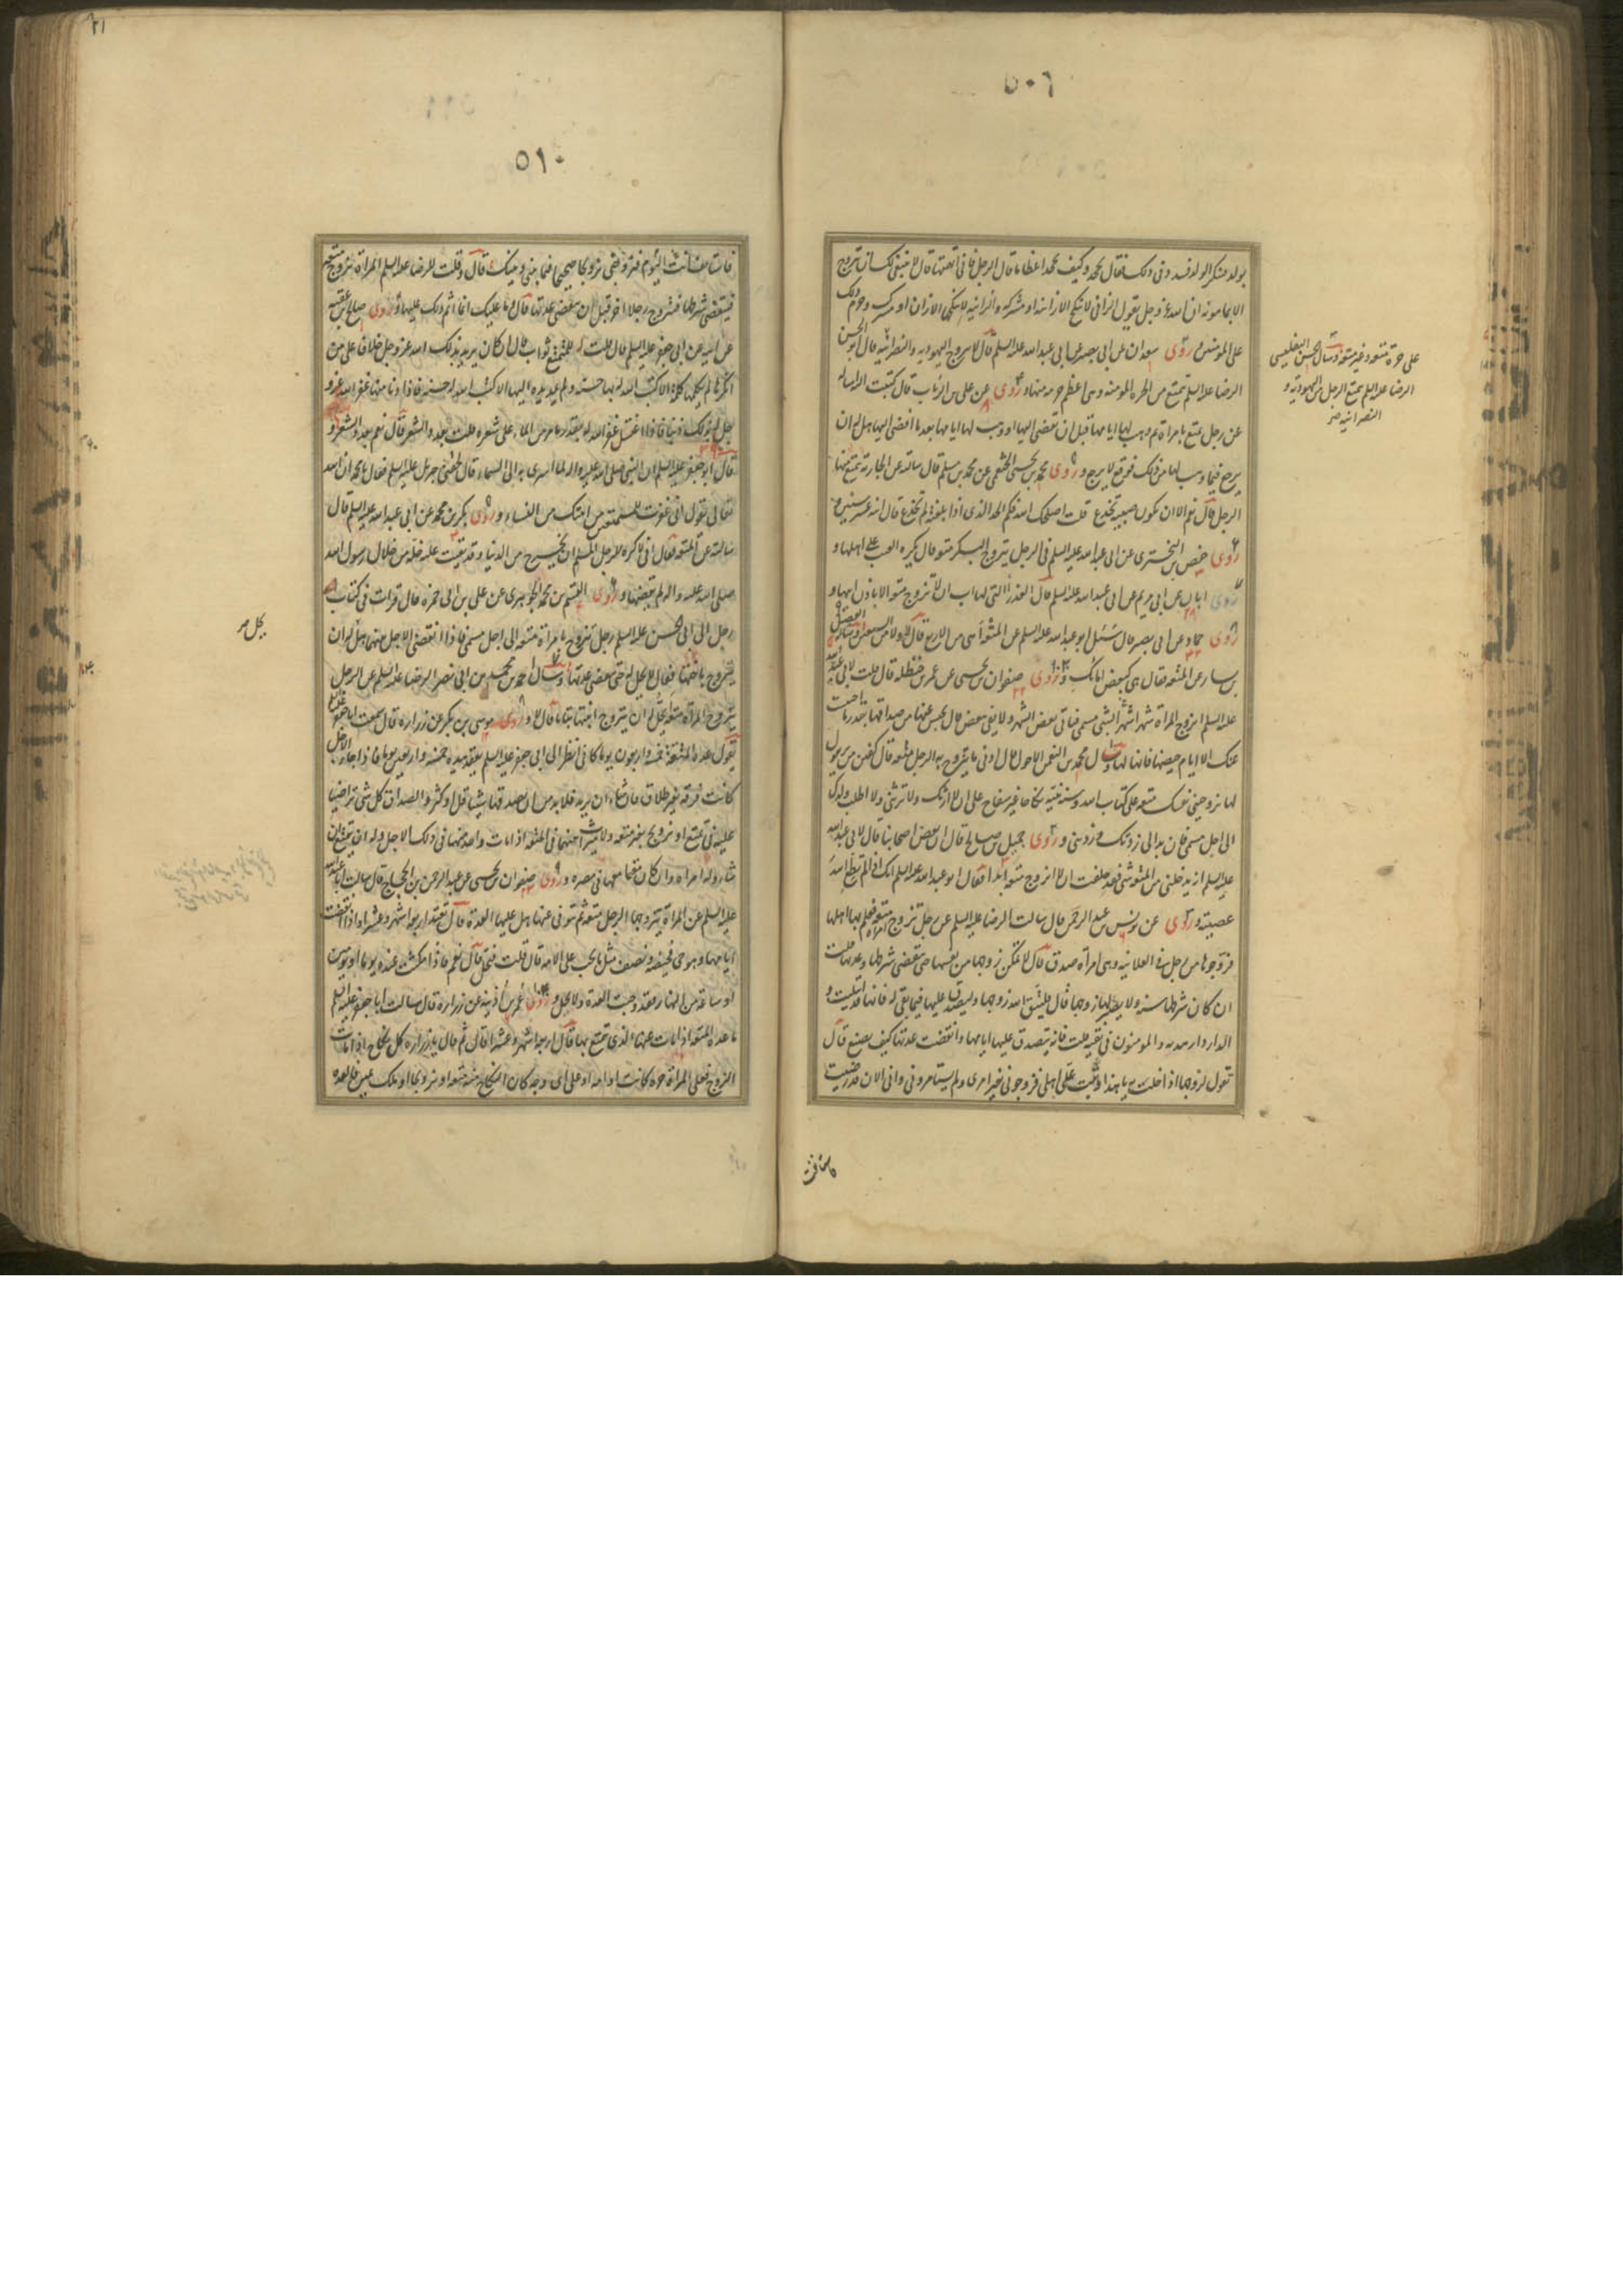 ٥٠٦
بولد فينكر الولد فشدد فى ذلك فقال يجحد وكيف يجحد اعظاما قال الرجل فانى اتهمتها قال لا ينبغى لك ان تتزوج
الا بمأمونة ان الله عز وجل يقول الزانى لا ينكح الا زانية او مشركة والزانية لا ينكحها الا زان او مشرك وحرم ذلك
على المؤمنين و روى سعدان عن ابى بصير عن ابى عبد الله عليه السلم قال لا يتزوج اليهودية والنصرانية
على حرة متعة وغير متعة وسال الحسن التفليسى
الرضا عليه السلم يتمتع الرجل من اليهودية و
النصرانية
قال ابو الحسن
الرضا عليه السلم يتمتع من الحرة المؤمنة وهى اعظم حرمة منها و روى عن على بن رئاب قال كتبت اليه اساله
عن رجل تمتع بامراة ثم وهب لها ايامها قبل ان يفضى اليها او وهب لها ايامها بعد ما افضى اليها هل له ان
يرجع فيما وهب لها من ذلك فوقع لا يرجع و روى محمد بن يحيى الخثعمى عن محمد بن مسلم قال سالته عن الجارية يتمتع منها
الرجل قال نعم الا ان تكون صبية تخدع قلت اصلحك الله فكم الحد الذى اذا بلغته لم تخدع قال ابنة عشر سنين و
روى حفص بن البخترى عن ابى عبد الله عليه السلم فى الرجل يتزوج البكر متعة قال يكره للعيب على اهلها و
روى ابان عن ابى مريم عن ابى عبد الله عليه السلم قال العذراء التى لها اب لا تتزوج متعة الا باذن ابيها و
روى حماد عن ابى بصير قال سئل ابو عبد الله عليه السلم عن المتعة أهى من الاربع قال لا ولا من السبعين وسال الفضيل
بن يسار عن المتعة فقال هى كبعض امائك و روى صفوان بن يحيى عن عمر بن حنظلة قال قلت لابى عبد الله
عليه السلم اتزوج المراة شهرا بشىء مسمى فتاتى بعض الشهر ولا تفى ببعض قال يحبس عنها من صداقها بقدر ما احتبست
عنك الا ايام حيضها فانها لها وسال محمد بن النعمن الاحول قال ادنى ما يتزوج به الرجل متعة قال كفين من بر يقول
لها زوجينى نفسك متعة على كتاب الله وسنة نبيه نكاحا غير سفاح على ان لا ارثك ولا ترثينى ولا اطلب ولدك
الى اجل مسمى فان بدا لى زدتك وزدتنى و روى جميل بن صالح قال ان بعض اصحابنا قال لابى عبد الله
عليه السلم انه يدخلنى من المتعة شىء فقد حلفت ان لا اتزوج متعة ابدا فقال ابو عبد الله عليه السلم انك اذا لم تطع الله
عصيته و روى عن يونس بن عبد الرحمن قال سالت الرضا عليه السلم عن رجل تزوج امراة متعة فعلم بها اهلها
فزوجوها من رجل فى العلانية وهى امراة صدق قال لا تمكن زوجها من نفسها حتى ينقضى شرطها وعدتها قلت
ان كان شرطها سنة ولا يصبر لها زوجها قال فليتق الله زوجها وليتصدق عليها فيما بقى له فانها قد ابتليت و
الدار دار هدنة والمؤمنون فى تقية قلت فانه تصدق عليها ايامها وانقضت عدتها كيف يصنع قال
تقول لزوجها اذا خلت به يا هذا وثبت على اهلى فزوجونى بغير امرى ولم يستامرونى وانى الان قد رضيت
٥١٠
فاستانف انت اليوم فتزوجنى تزويجا صحيحا فيما بينى وبينك قال وقلت للرضا عليه السلم المراة تتزوج متعة
فينقضى شرطها فتتزوج رجلا اخر قبل ان تنقضى عدتها قال وما عليك انما اثم ذلك عليها و روى صالح بن عقبة
عن ابيه عن ابى جعفر عليه السلم قال قلت له للمتمتع ثواب قال ان كان يريد بذلك الله عز وجل وخلافا على من
انكرها لم يكلمها كلمة الا كتب الله له بها حسنة ولم يمد يده اليها الا كتب الله له حسنة فاذا دنا منها غفر الله عز و
جل له بذلك ذنبا فاذا اغتسل غفر الله له بقدر ما مر من الماء على شعره قلت بعدد الشعر قال نعم بعدد الشعر و
قال ابو جعفر عليه السلم ان النبى صلى الله عليه واله لما اسرى به الى السماء قال لحقنى جبرئيل عليه السلم فقال يا محمد ان الله
تعالى يقول انى غفرت للمتمتعين من امتك من النساء و روى بكر بن محمد عن ابى عبد الله عليه السلم قال
سالته عن المتعة فقال انى لاكره للرجل المسلم ان يخرج من الدنيا وقد بقيت عليه خلة من خلال رسول الله
صلى الله عليه واله لم يقضها و روى القسم بن محمد الجوهرى عن على بن ابى حمزة قال قرات فى كتاب
رجل الى ابى الحسن عليه السلم رجل تزوج بامراة متعة الى اجل مسمى فاذا انقضى الاجل بينهما هل له ان
يتزوج باختها فقال لا يحل له حتى تنقضى عدتها وسال احمد بن محمد بن ابى نصر الرضا عليه السلم عن الرجل
يحل
يتزوج المراة متعة يحل له ان يتزوج ابنتها بتاتا قال لا و روى موسى بن بكر عن زرارة قال سمعت ابا جعفر عليه السلم
يقول عدة المتعة خمسة واربعون يوما كانى انظر الى ابى جعفر عليه السلم يعقد بيده خمسة واربعين يوما فاذا جاز الاجل
كانت فرقة بغير طلاق فان شاء ان يزيد فلا بد من ان يصدقها شيئا قل او كثر والصداق كل شىء تراضيا
عليه فى تمتع او تزويج بغير متعة ولا ميراث بينهما فى المتعة اذا مات واحد منهما فى ذلك الاجل وله ان يتمتع ان
شاء وله امراة وان كان مقيما معها فى مصره و روى صفوان بن يحيى عن عبد الرحمن بن الحجاج قال سالت ابا عبد الله
عليه السلم عن المراة يتزوجها الرجل متعة ثم توفى عنها هل عليها العدة قال تعتد اربعة اشهر وعشرا واذا انقضت
ايامها وهو حى فحيضة ونصف مثل ما يجب على الامة قال قلت فتحد قال نعم فاذا مكثت عنده يوما او يومين
او ساعة من النهار فقد وجبت العدة ولا تحد و روى عمر بن اذينة عن زرارة قال سالت ابا جعفر عليه السلم
ما عدة المتعة اذا مات عنها الذى تمتع بها قال اربعة اشهر وعشرا قال ثم قال يا زرارة كل النكاح اذا مات
الزوج فعلى المراة حرة كانت او امة او على اى وجه كان النكاح منه متعة او تزويجا او ملك يمين فالعدة